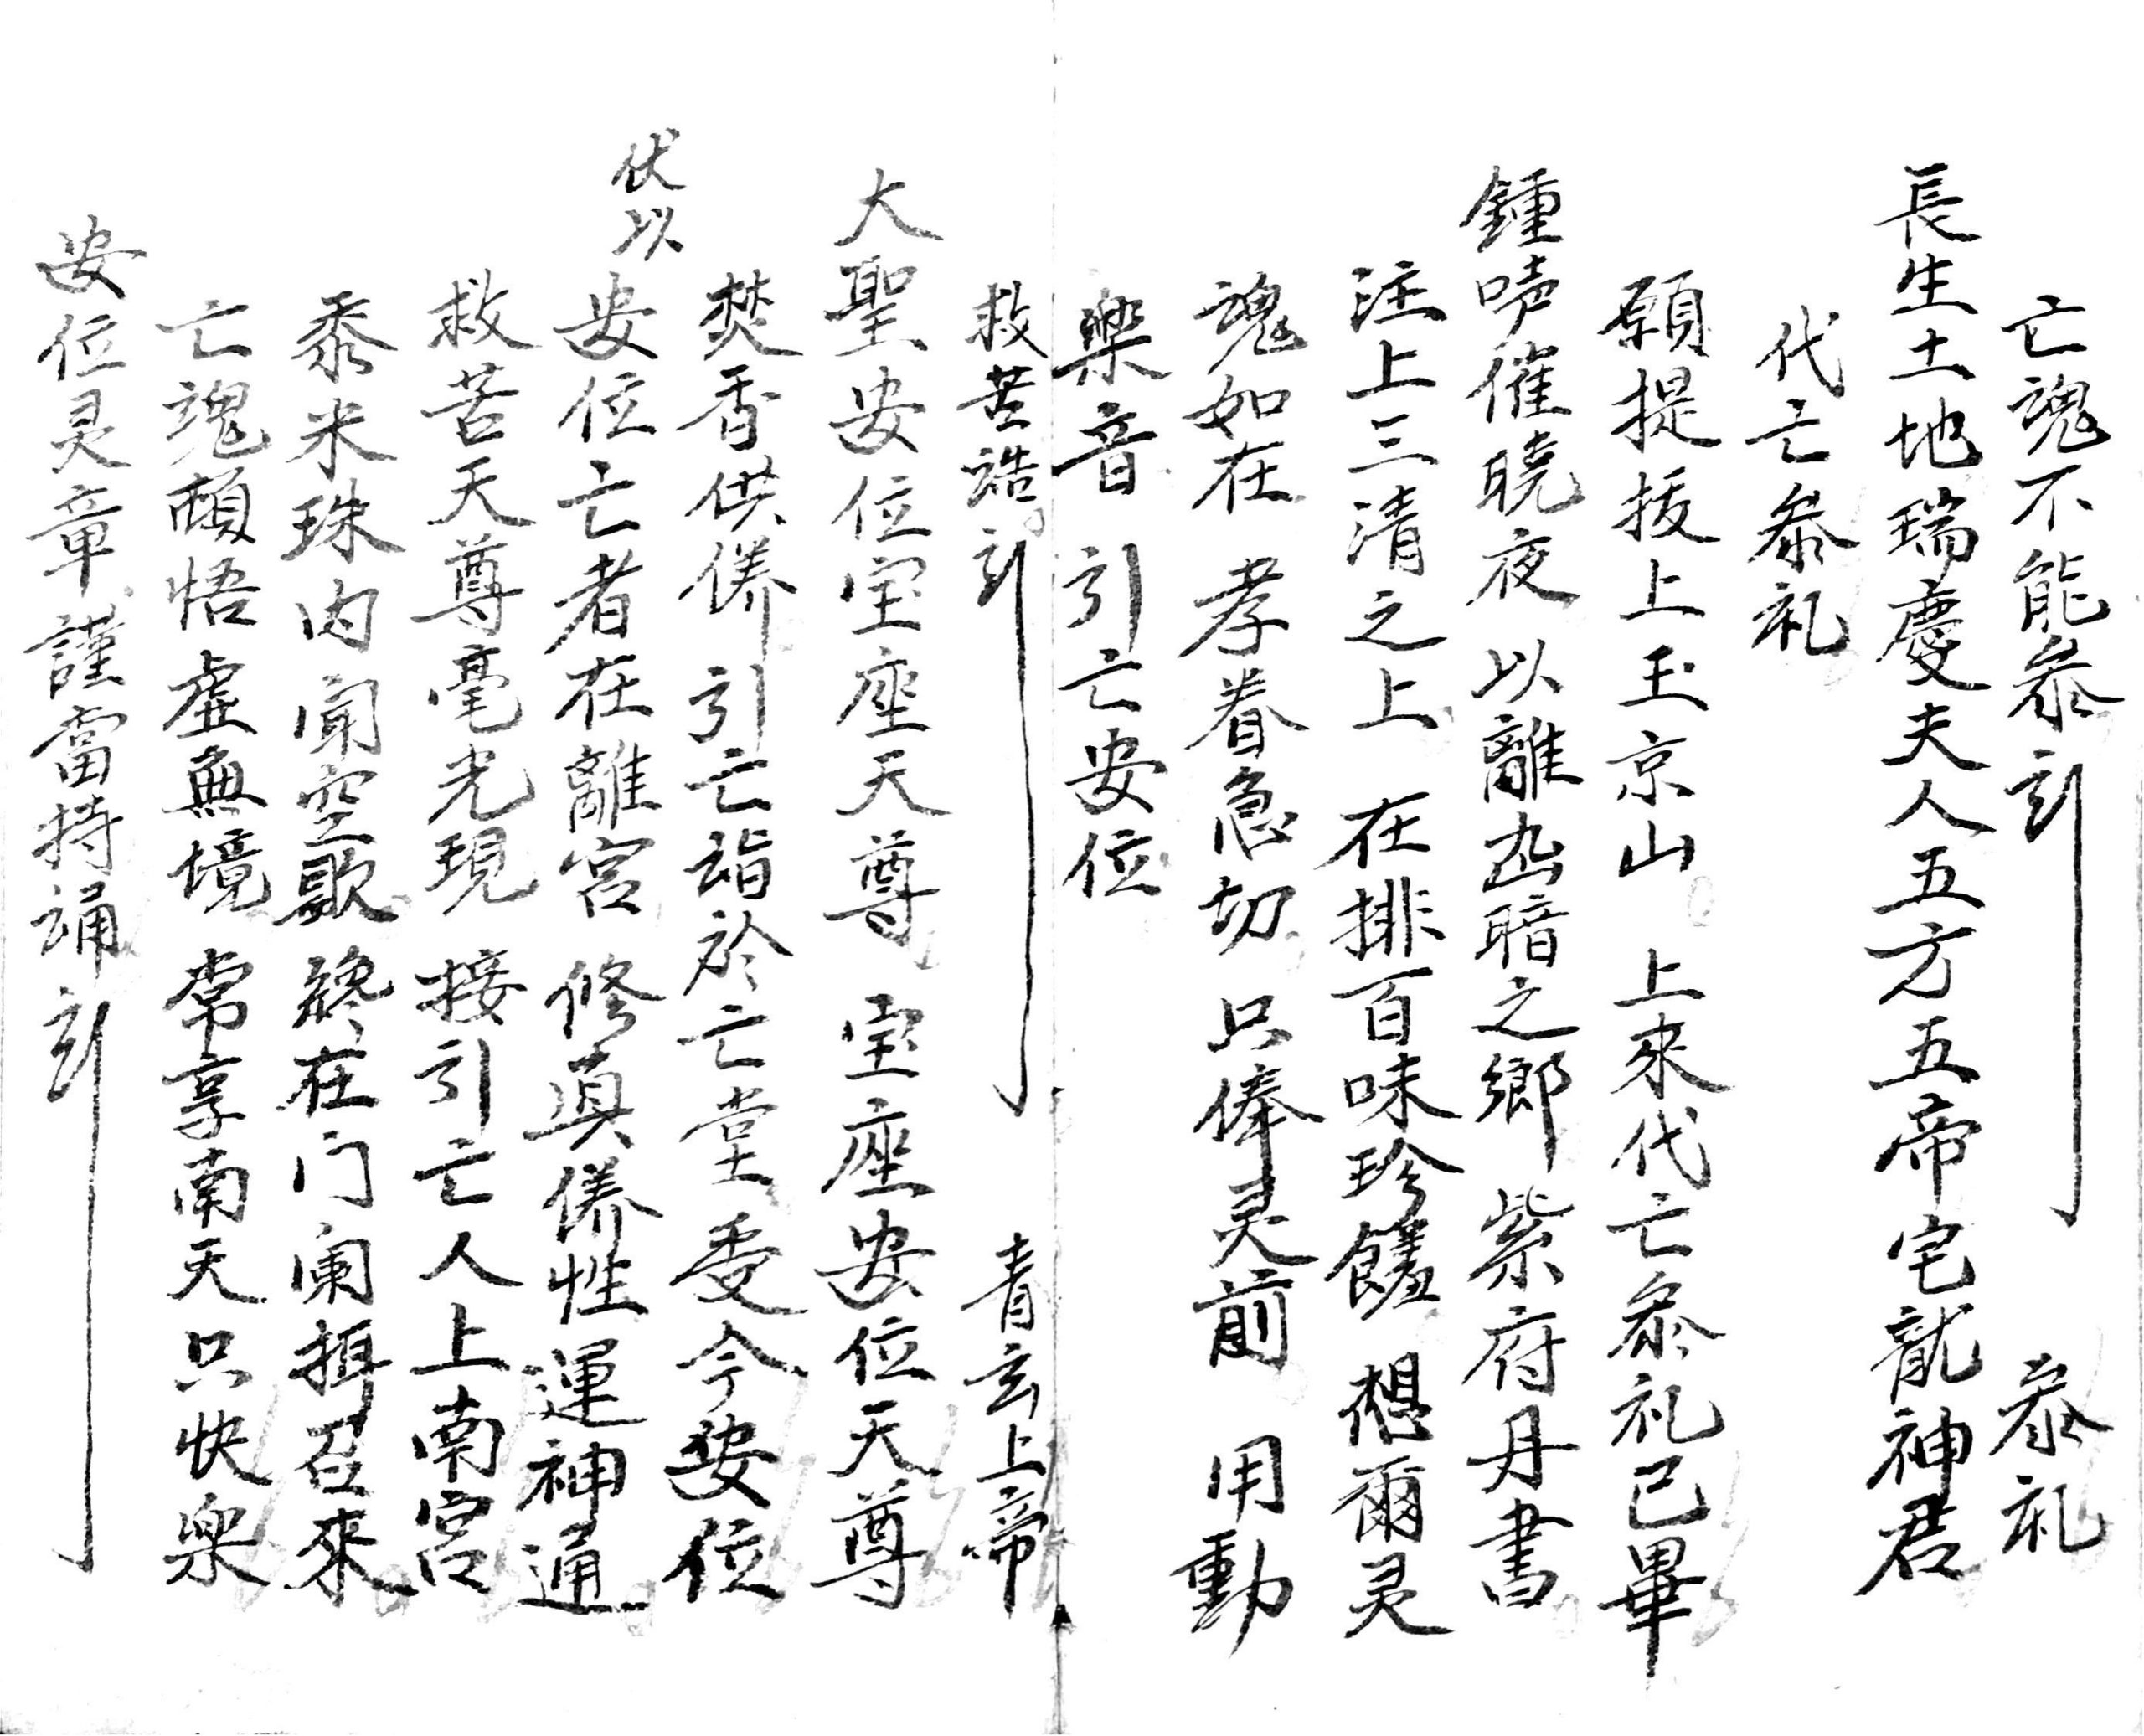 亡魂不能叅刘 叅礼
長生土地瑞慶夫人五方五帝宅龍神君
代亡叅礼
願提拔上玉京山 上來代亡叅礼已畢
鍾声催曉夜 以離凼暗之鄉 紫府丹書
注上三清之上 在排百味珍饈 想爾灵
魂如在 孝眷急切 只俸灵前 用動
楽音 引亡安位
救苦誥刘 青玄上帝
大聖安位宝座天尊 宝座安位天尊
焚香供養 引亡詣於亡堂 受今安位
伏以
安位亡者在離宮 修真養性運神通
救苦天尊毫光現 接引亡人上南宮
黍米珠内闻空歌 終在门阑損召來
亡魂頓悟虚無境 常享南天只快楽
安位灵章謹當持誦刘